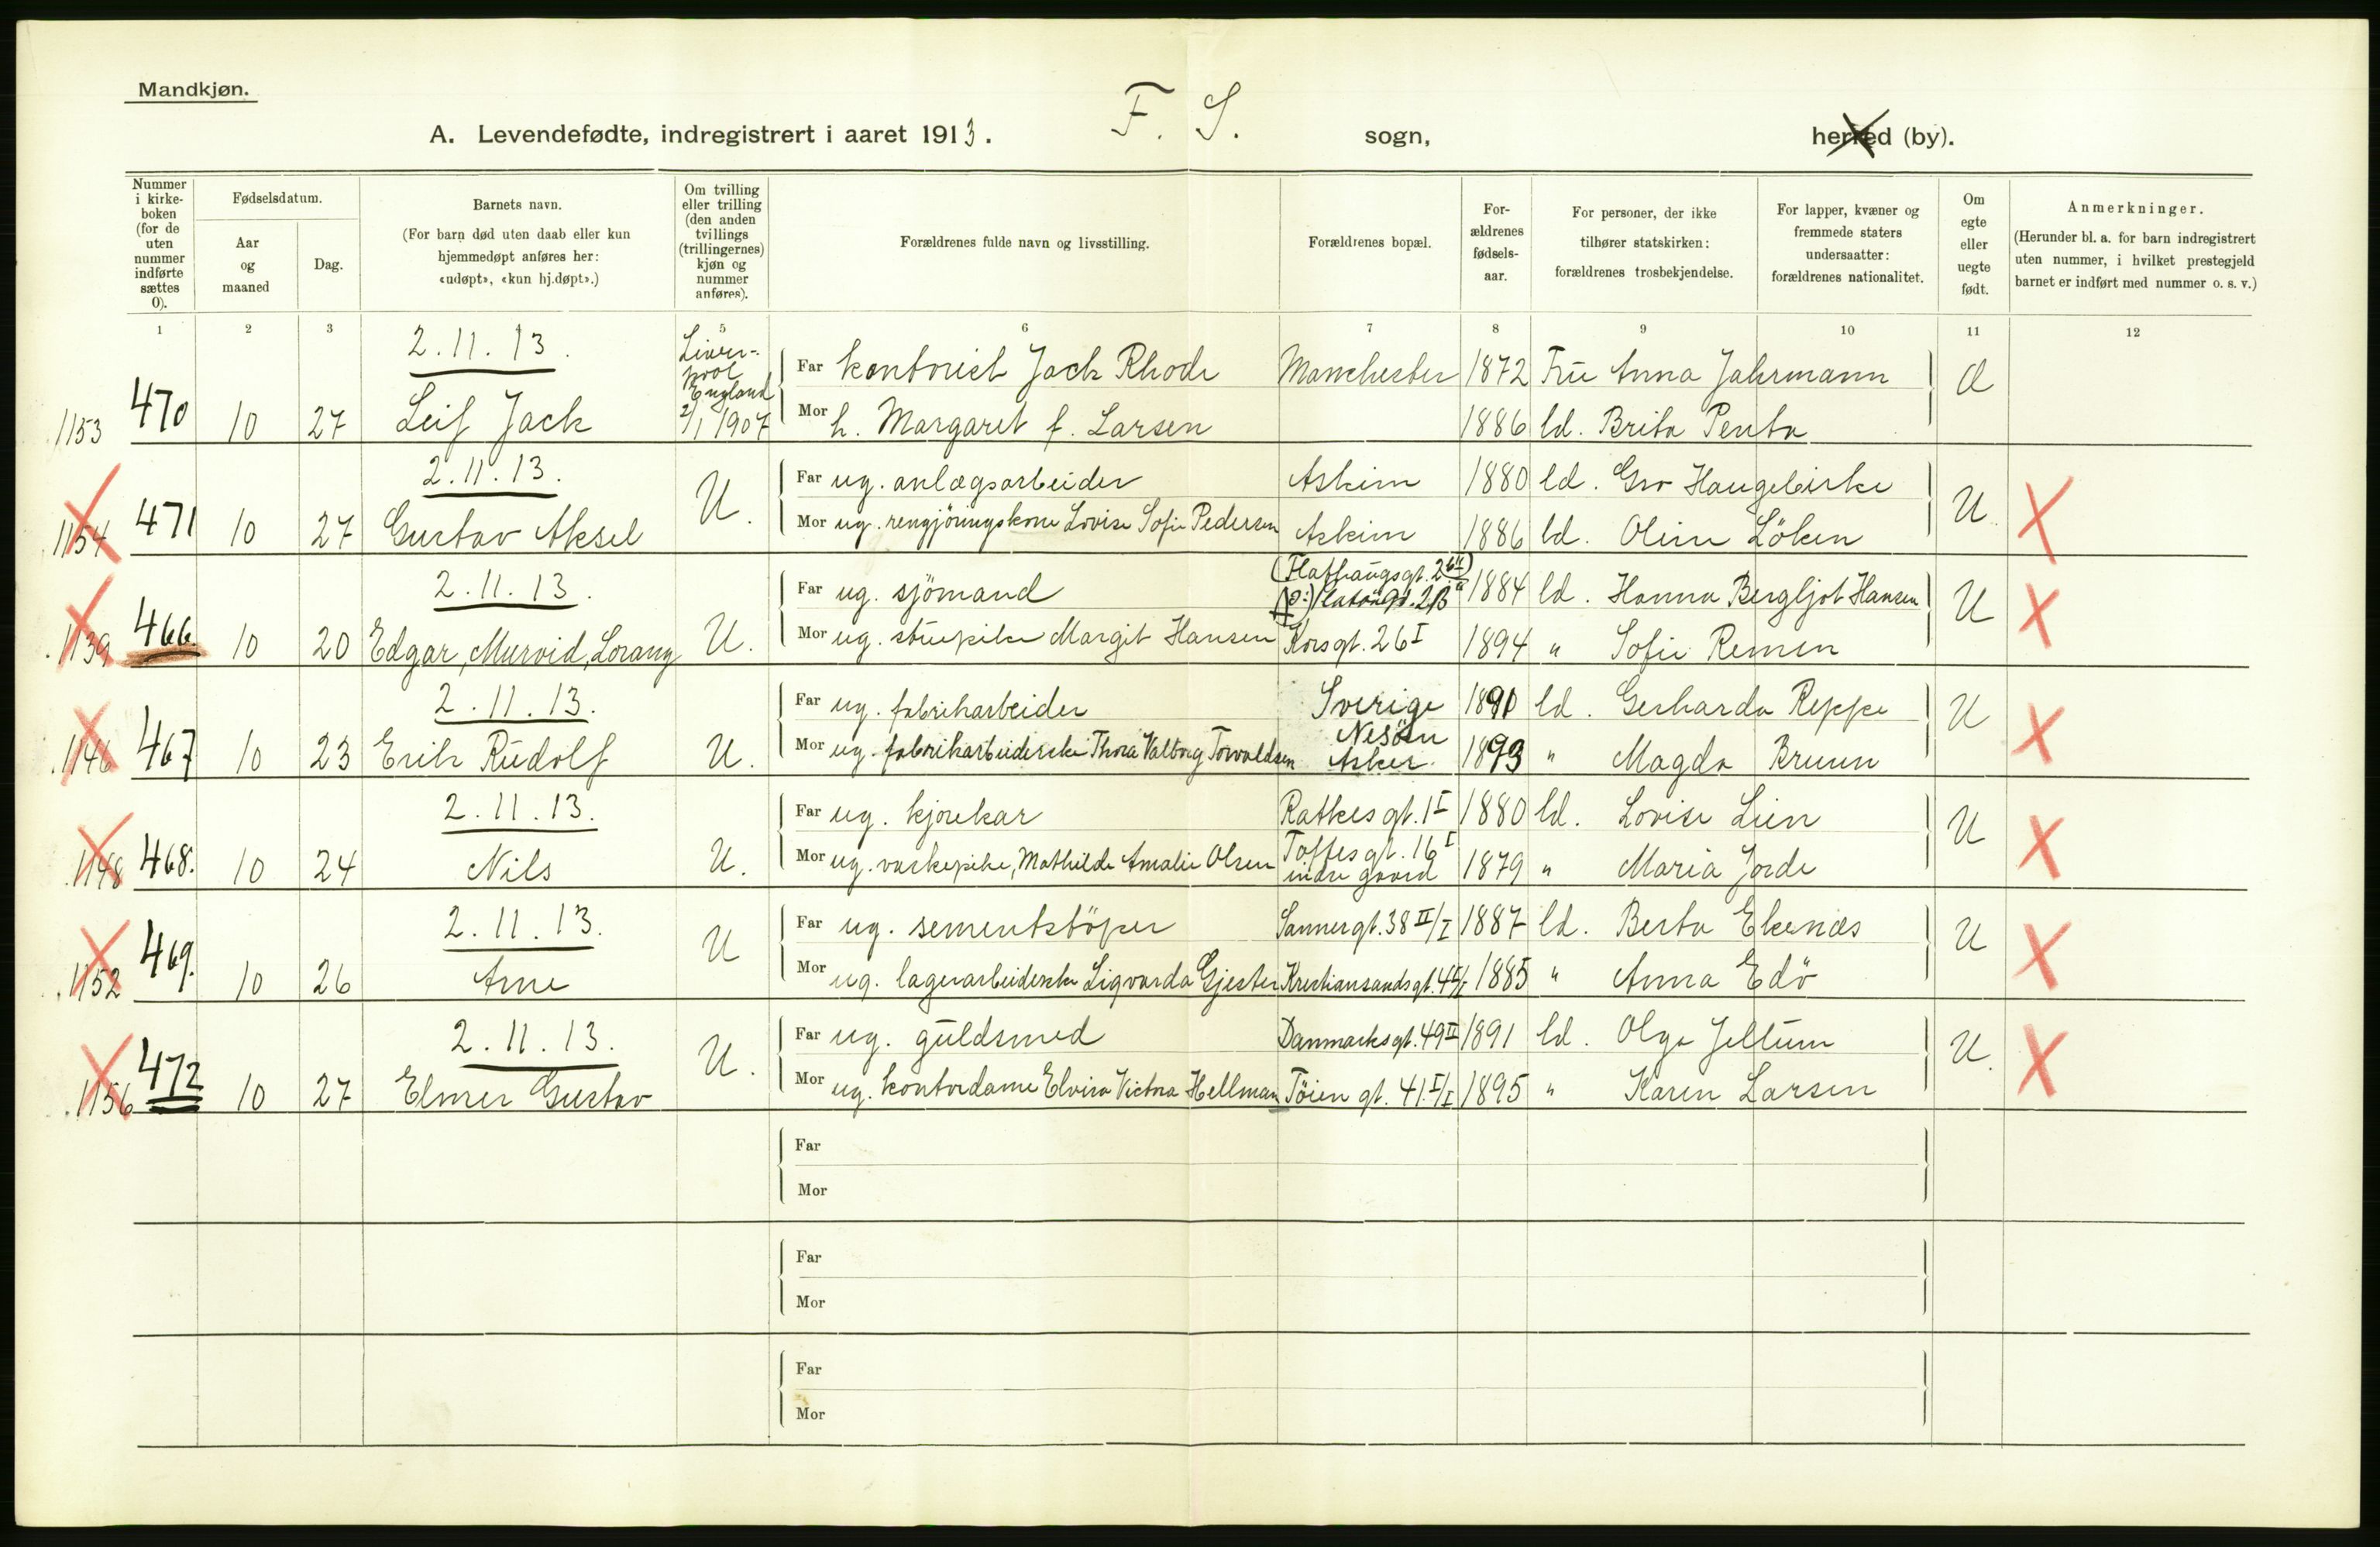 Mandkjøn.
A. Levendefødte, indregistrert i aaret 1913. F. S. sogn, herred (by).
Nummer i kirke-boken (for de uten nummer indførte sættes 0).
Fødselsdatum.
Aar og maaned
Dag.
Barnets navn.
(For barn død uten daab eller kun hjemmedøpt anføres her: «udøpt», «kun hj.døpt».)
Om tvilling eller trilling (den anden tvillings (trillingernes) kjøn og nummer anføres).
Forældrenes fulde navn og livsstilling.
Forældrenes bopæl.
For-ældrenes fødsels-aar.
For personer, der ikke tilhører statskirken: forældrenes trosbekjendelse.
For lapper, kvæner og fremmede staters undersaatter: forældrenes nationalitet.
Om egte eller uegte født.
Anmerkninger.
(Herunder bl. a. for barn indregistrert uten nummer, i hvilket prestegjeld barnet er indført med nummer o. s. v.)
1 2 3 5 6 7 8 9 10 11 12
2.11.13.
Liver-pool England 2/1 1907
Far kontorist Jack Rhode Manchester 1872 Fru Anna Jahrmann
1153 470 10 27 Leif Jack
Mor h. Margaret f. Larsen 1886 ld. Brita Penta
2.11.13.
Far ug. anlægsarbeider Askim 1880 ld. Gro Haugebirke
1154 471 10 27 Gustav Aksel U.
Mor ug. rengjöringskone Lovise Sofie Pedersen Askim 1886 ld. Oline Löken U.
2.11.13.
Far ug. sjömand (Flathaugsgt. 2 1884 ld. Hanna Bergljot Hansen
1139 466. 10 20 Edgar, Murvid, Lorang U.
Mor ug. strykepike Margit Hansen Korsgt. 26 I 1894 " Sofie Remen U
2.11.13.
Far ug. fabrikarbeider Sverige 1890 ld. Gerharda Reppe
1146 467 10 23 Erik Rudolf U.
Mor ug. fabrikarbeiderske Thora Valborg Torvaldsen Nesöen Asker. 1893 " Magda Bruun U
2.11.13.
Far ug. kjörekar Rathkes gt. 1 I 1880 ld. Lovise Lien
1148 468. 10 24 Nils U.
Mor ug. vaskepike, Mathilde Amalie Olsen Toftes gt. 16 I indre gaard 1879 " Maria Jorde U
2.11.13.
Far ug. sementstöper Sannergt. 38 II/I 1887 ld. Berta Ekenæs
1152 469. 10 26 Arne U
Mor ug. lagerarbeiderske Sigvarda Gjester Kristiansandsgt. 1885 " Anna Edö U
2.11.13.
Far ug. guldsmed Danmarksgt. 49 II 1891 ld. Olga Jeltum
1156 472 10 27 Elmer Gustav U.
Mor ug. kontordame Elvira Victoria Hellman Töien gt. 41 I/I 1895 " Karen Larsen U.
Far
Mor
Far
Mor
Far
Mor